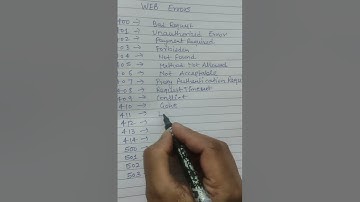 WEB Errors
400 → Bad Request
401 → Unauthorised Error
402 → Payment Required
403 → Forbidden
404 → Not Found
405 → Method Not Allowed
406 → Not Acceptable
407 → Proxy Authentication Requ
408 → Request Timeout
409 → Conflict
410 → Gone
411 →
412 →
413 →
414 →
500
501
502
503